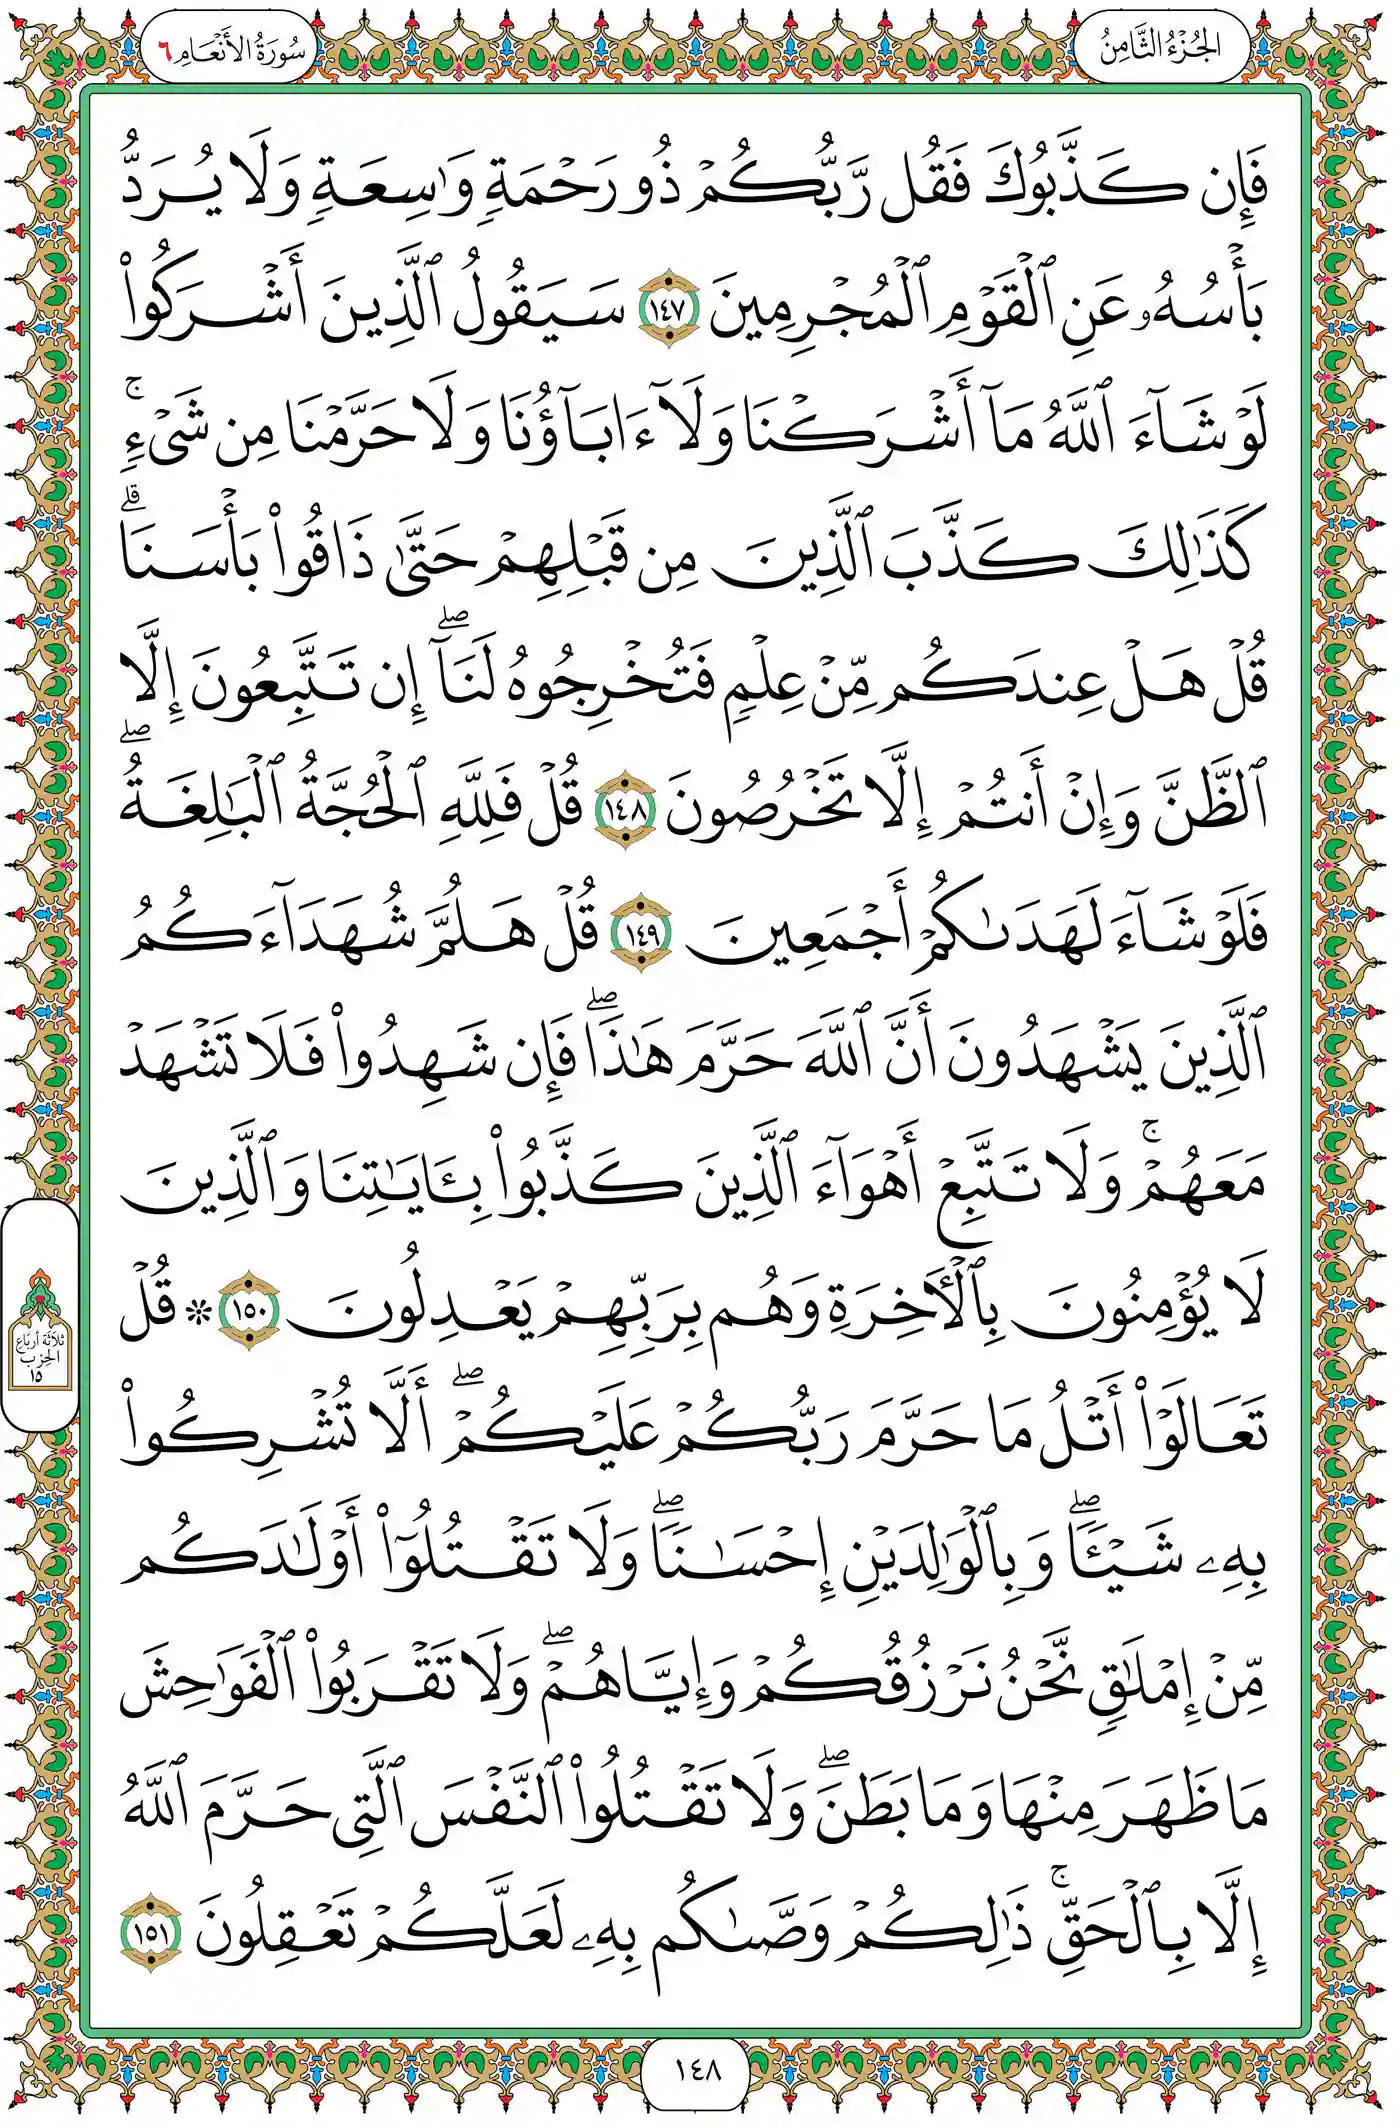 الجُزْءُ الثَّامِنُ
سُورَةُ الأَنْعَامِ ٦
فَإِن كَذَّبُوكَ فَقُل رَّبُّكُمْ ذُو رَحْمَةٍ وَٰسِعَةٍ وَلَا يُرَدُّ
بَأْسُهُۥ عَنِ ٱلْقَوْمِ ٱلْمُجْرِمِينَ ١٤٧ سَيَقُولُ ٱلَّذِينَ أَشْرَكُوا۟
لَوْ شَآءَ ٱللَّهُ مَآ أَشْرَكْنَا وَلَآ ءَابَآؤُنَا وَلَا حَرَّمْنَا مِن شَىْءٍ ۚ
كَذَٰلِكَ كَذَّبَ ٱلَّذِينَ مِن قَبْلِهِمْ حَتَّىٰ ذَاقُوا۟ بَأْسَنَا ۗ
قُلْ هَلْ عِندَكُم مِّنْ عِلْمٍ فَتُخْرِجُوهُ لَنَآ ۖ إِن تَتَّبِعُونَ إِلَّا
ٱلظَّنَّ وَإِنْ أَنتُمْ إِلَّا تَخْرُصُونَ ١٤٨ قُلْ فَلِلَّهِ ٱلْحُجَّةُ ٱلْبَٰلِغَةُ ۖ
فَلَوْ شَآءَ لَهَدَىٰكُمْ أَجْمَعِينَ ١٤٩ قُلْ هَلُمَّ شُهَدَآءَكُمُ
ٱلَّذِينَ يَشْهَدُونَ أَنَّ ٱللَّهَ حَرَّمَ هَٰذَا ۖ فَإِن شَهِدُوا۟ فَلَا تَشْهَدْ
مَعَهُمْ ۚ وَلَا تَتَّبِعْ أَهْوَآءَ ٱلَّذِينَ كَذَّبُوا۟ بِـَٔايَٰتِنَا وَٱلَّذِينَ
لَا يُؤْمِنُونَ بِٱلْـَٔاخِرَةِ وَهُم بِرَبِّهِمْ يَعْدِلُونَ ١٥٠ * قُلْ
ثلاثة أرباع
الحزب
١٥
تَعَالَوْا۟ أَتْلُ مَا حَرَّمَ رَبُّكُمْ عَلَيْكُمْ ۖ أَلَّا تُشْرِكُوا۟
بِهِۦ شَيْـًٔا ۖ وَبِٱلْوَٰلِدَيْنِ إِحْسَٰنًا ۖ وَلَا تَقْتُلُوٓا۟ أَوْلَٰدَكُم
مِّنْ إِمْلَٰقٍ نَّحْنُ نَرْزُقُكُمْ وَإِيَّاهُمْ ۖ وَلَا تَقْرَبُوا۟ ٱلْفَوَٰحِشَ
مَا ظَهَرَ مِنْهَا وَمَا بَطَنَ ۖ وَلَا تَقْتُلُوا۟ ٱلنَّفْسَ ٱلَّتِى حَرَّمَ ٱللَّهُ
إِلَّا بِٱلْحَقِّ ۚ ذَٰلِكُمْ وَصَّىٰكُم بِهِۦ لَعَلَّكُمْ تَعْقِلُونَ ١٥١
١٤٨